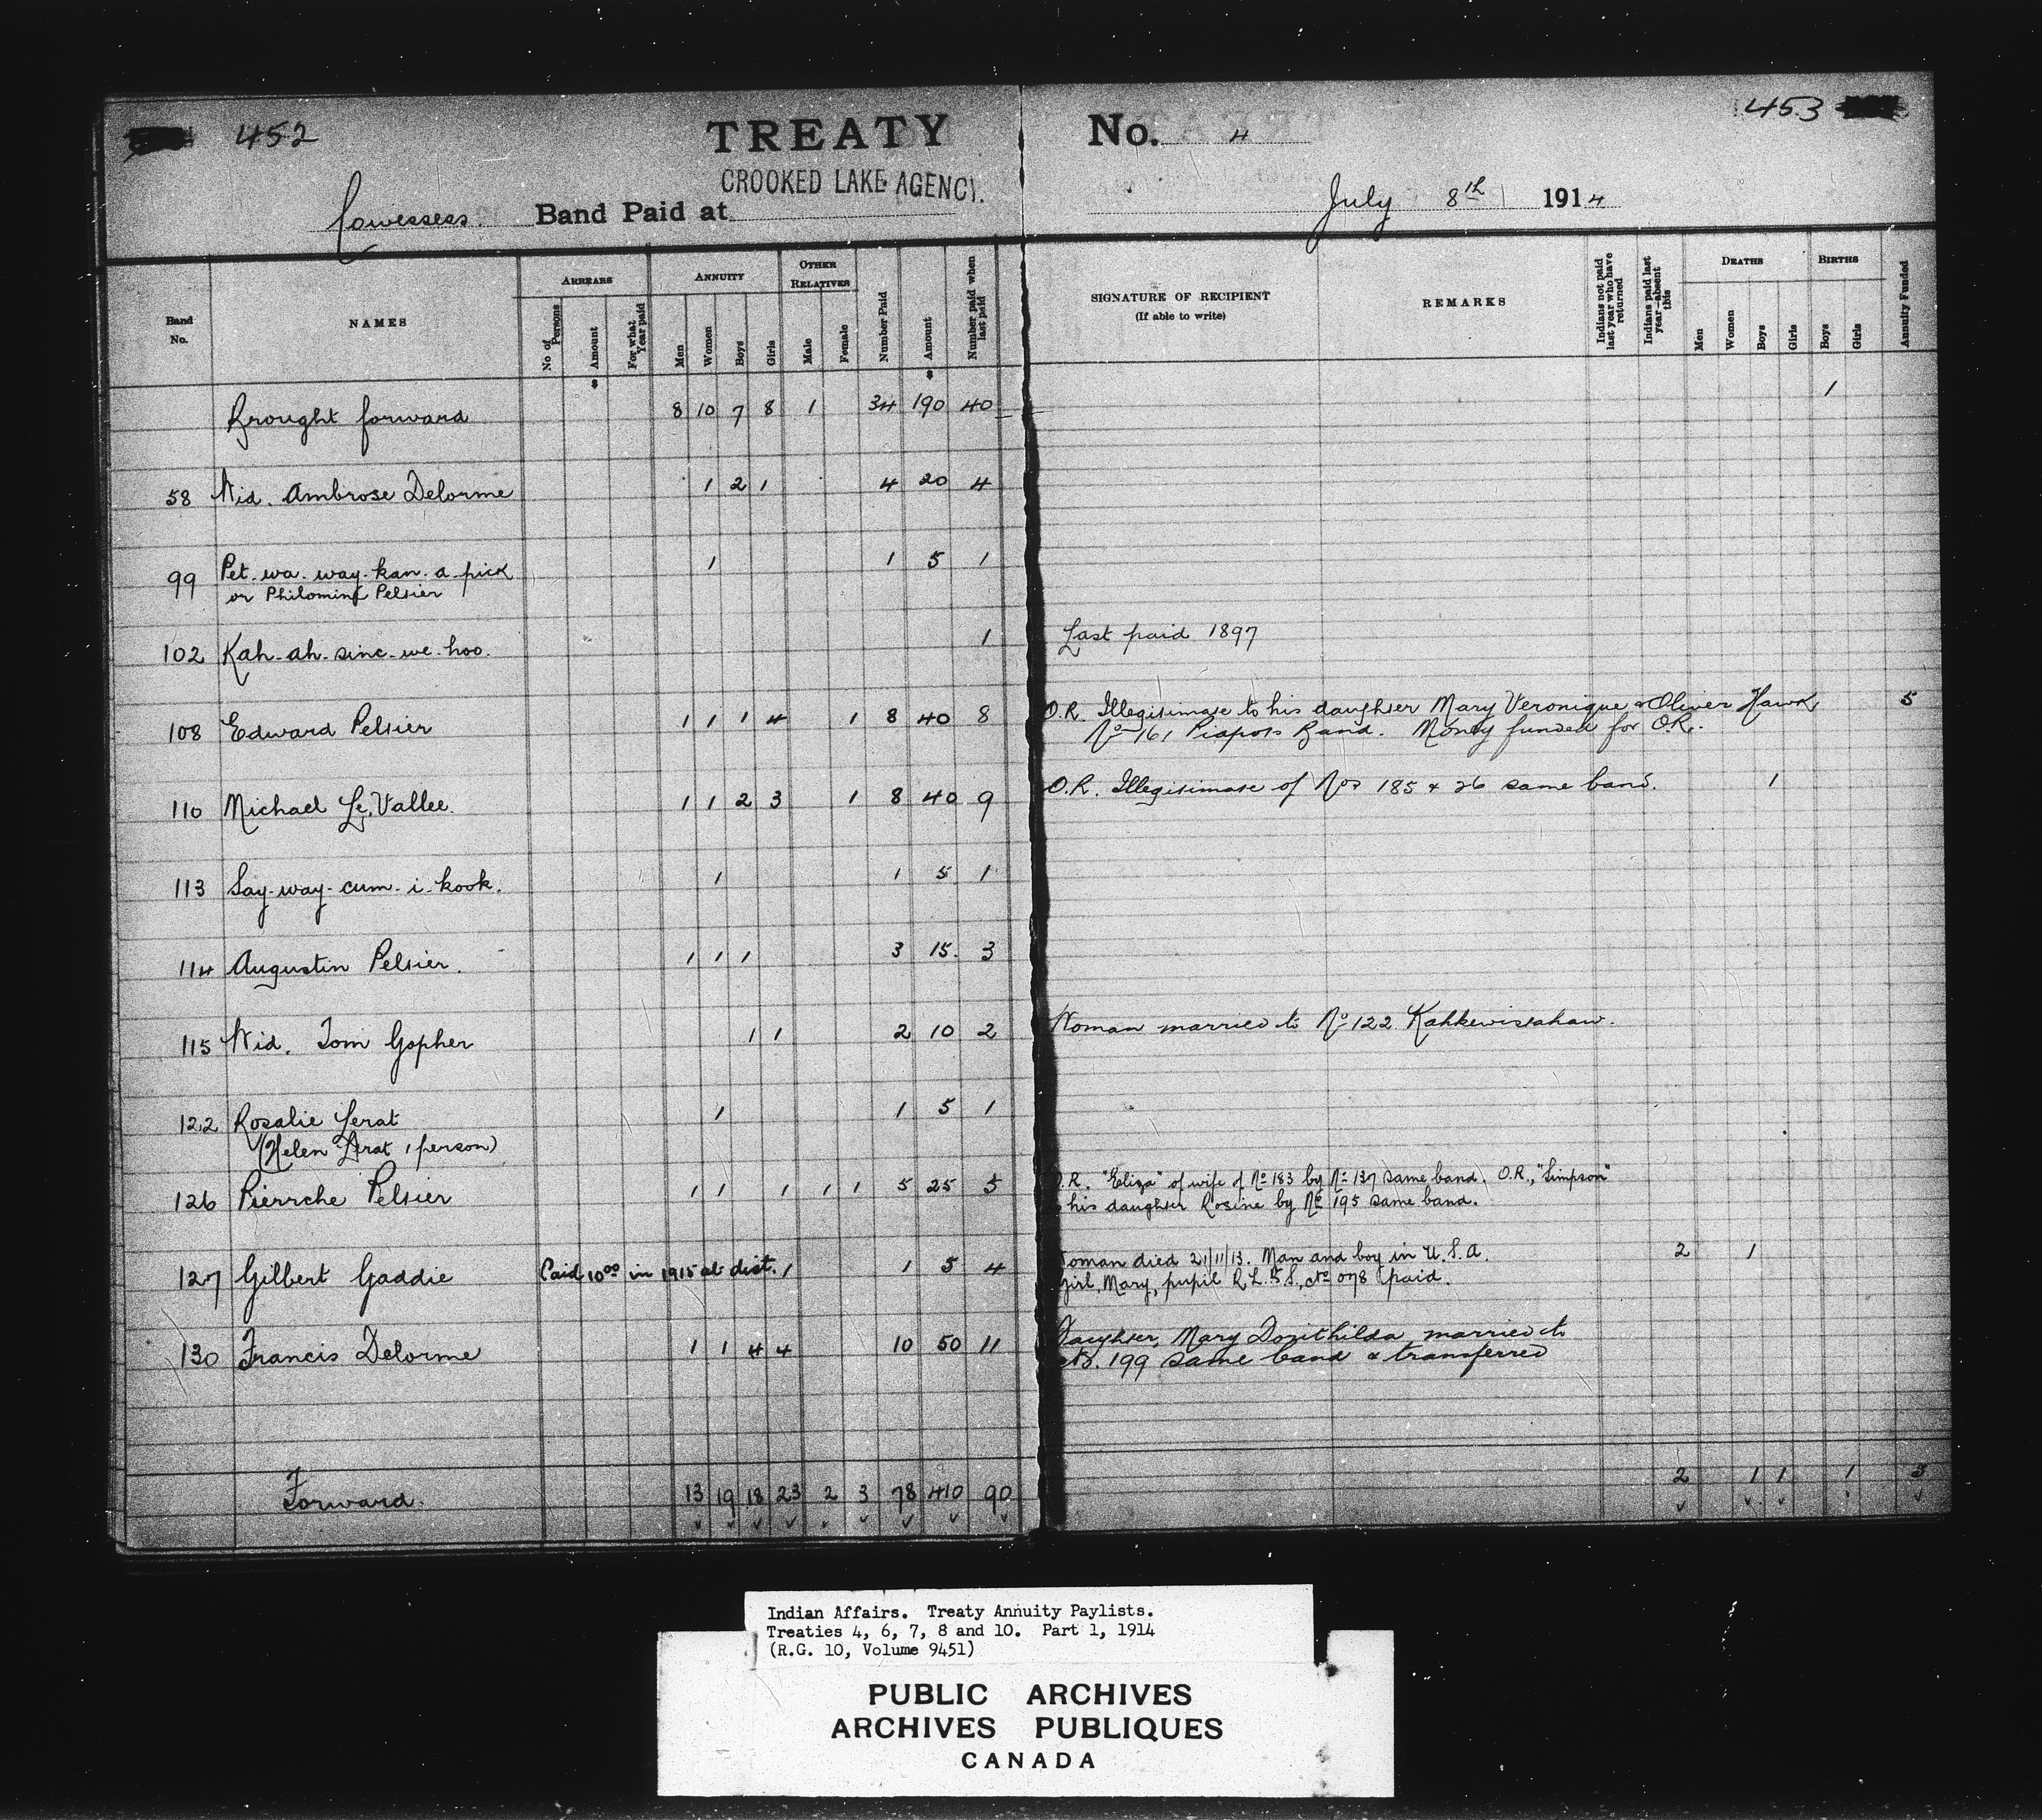 452
453
TREATY No. 4
CROOKED LAKE AGENCY.
Cowessess. Band Paid at July 8th 1914
Band No. NAMES ARREARS ANNUITY OTHER RELATIVES Number Paid Amount Number paid when last paid SIGNATURE OF RECIPIENT REMARKS Indians not paid last year who have returned Indians paid last year—absent this DEATHS BIRTHS Annuity Funded
(If able to write)
No of Persons $ Amount For what Year paid Men Women Boys Girls Male Female $ Men Women Boys Girls Boys Girls
Brought forward 8 10 7 8 1 34 190 40 1
58 Wid. Ambrose Delorme 1 2 1 4 20 4
99 Pet-wa-way-kan-a-pick 1 1 5 1
or Philomine Peltier
102 Kah-ah-sine-we-hoo. 1 Last paid 1897
108 Edward Peltier 1 1 1 4 1 8 40 8 O.R. Illegitimate to his daughter Mary Veronique & Oliver Hawk 5
No 161 Piapots Band. Money funded for O.R.
110 Michael Le Vallee. 1 1 2 3 1 8 40 9 O.R. Illegitimate of Nos 185 & 26 same band. 1
113 Say-way-cum-i-kook. 1 1 5 1
114 Augustin Peltier. 1 1 1 3 15. 3
115 Wid. Tom Gopher 1 1 2 10 2 Woman married to No 122 Kahkewistahaw.
122 Rosalie Lerat 1 1 5 1
(Helen Lerat 1 person)
126 Pierrche Peltier 1 1 1 1 1 5 25 5 O.R. "Eliza" of wife of No 183 by No 137 same band. O.R., "Simpson"
his daughter Rosine by No 195 same band.
127 Gilbert Gaddie Paid 10.00 in 1915 at dist. 1 1 5 4 Woman died 21/11/13. Man and boy in U.S.A. 2 1
Girl, Mary, pupil R.L. S., 078 paid.
130 Francis Delorme 1 1 4 4 10 50 11 Daughter, Mary Dosithilda, married to
No. 199 same band & transferred
Forward. 13 19 18 23 2 3 78 410 90 2 1 1 1 5
Indian Affairs. Treaty Annuity Paylists.
Treaties 4, 6, 7, 8 and 10. Part 1, 1914
(R.G. 10, Volume 9451)
PUBLIC ARCHIVES
ARCHIVES PUBLIQUES
CANADA